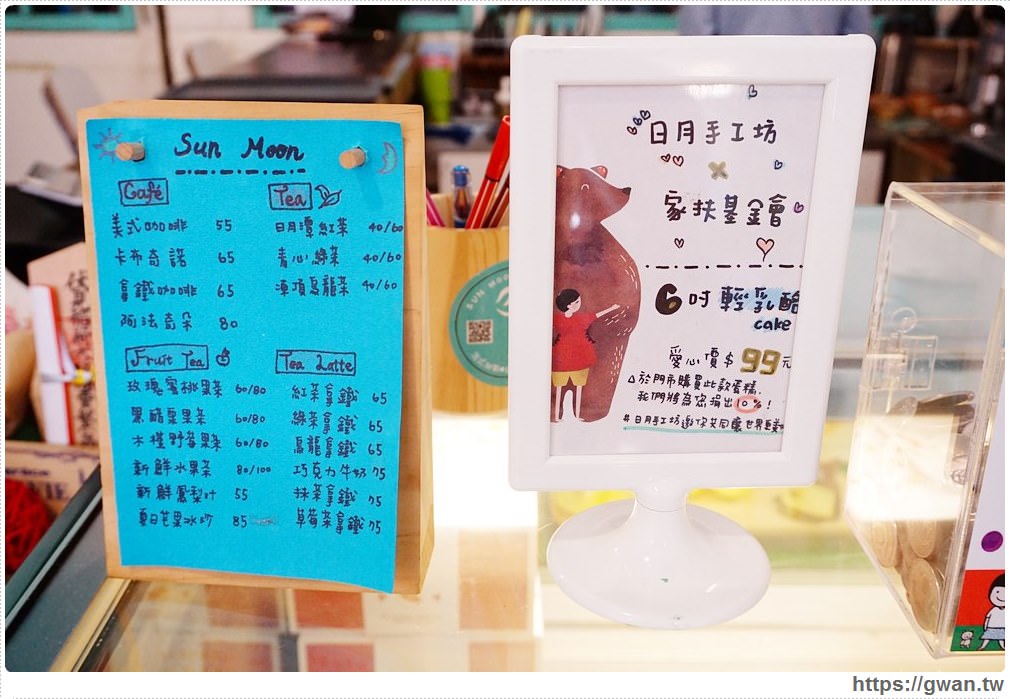 Sun Moon
Café
美式咖啡 55
卡布奇諾 65
拿鐵咖啡 65
阿法奇朵 80
Tea
日月潭紅茶 40/60
青心綠茶 40/60
凍頂烏龍茶 40/60
Fruit Tea
玫瑰蜜桃果茶 60/80
黑醋栗果茶 60/80
木槿野莓果茶 60/80
新鮮水果茶 80/100
新鮮鳳梨汁 55
夏日芒果冰沙 85
Tea Latte
紅茶拿鐵 65
綠茶拿鐵 65
烏龍拿鐵 65
巧克力牛奶 75
抹茶拿鐵 75
草莓茶拿鐵 75
SUN MOON
日月手工坊
×
家扶基金會
6吋輕乳酪
cake
愛心價$99元
△於門市購買此款蛋糕,
我們將為您捐出10%!
#日月手工坊邀你共同讓世界更美
https://gwan.tw